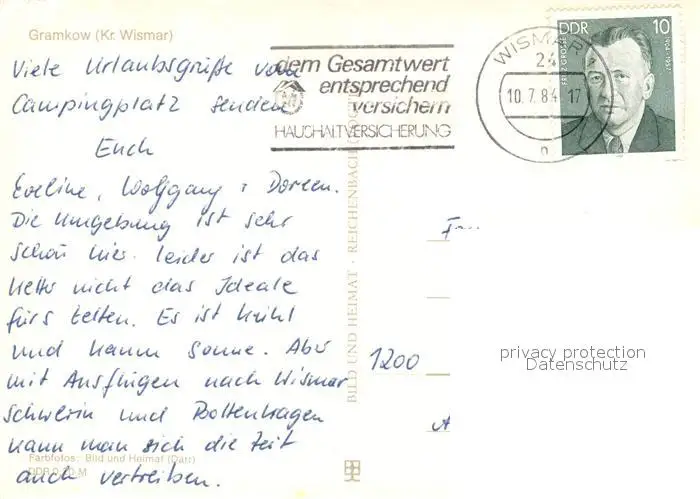 Gramkow (Kr. Wismar)
Viele Urlaubsgrüße vom
Campingplatz senden
Euch
Eveline, Wolfgang + Doreen.
Die Umgebung ist sehr
schön hier. leider ist das
Wetter nicht das Ideale
fürs Zelten. Es ist kühl
und kaum Sonne. Aber
mit Ausflügen nach Wismar
Schwerin und Boltenhagen
kann man sich die Zeit
auch vertreiben.
Farbfotos: Bild und Heimat (Darr)
BILD UND HEIMAT · REICHENBACH
dem Gesamtwert
entsprechend
versichern
HAUSHALTVERSICHERUNG
WISMAR
24
10.7.84 17
n
DDR 10
FRITZ GROSSE 1904-1957
1200
privacy protection
Datenschutz